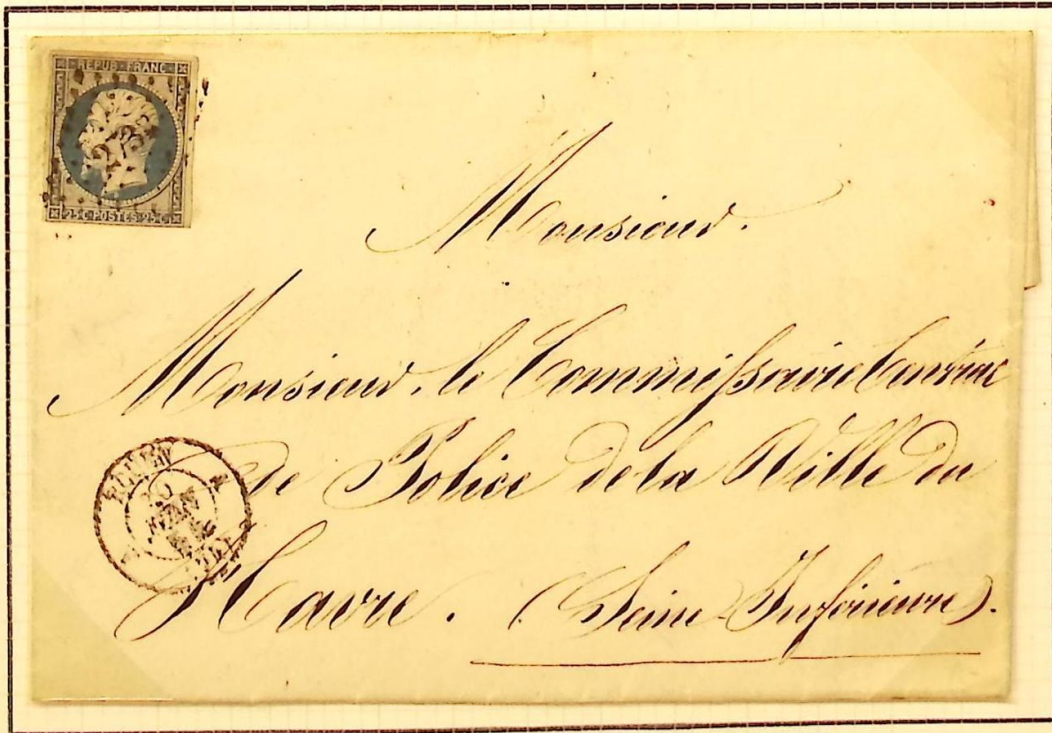 REPUB FRANC
25 C POSTES 25 C
Monsieur.
Monsieur, le Commissaire Central
de Police de la Ville du
Havre. (Seine Inférieure).
ROUEN